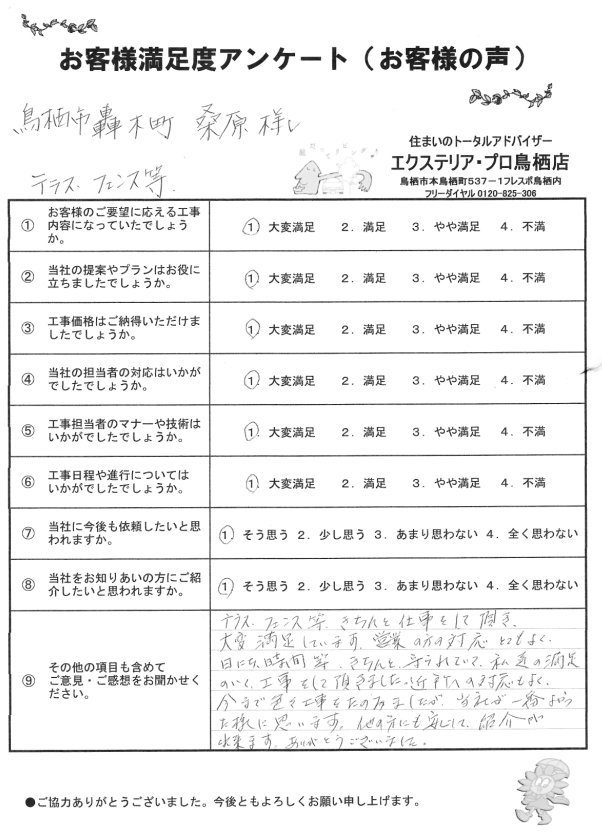 お客様満足度アンケート（お客様の声）
鳥栖市轟木町 桑原様
住まいのトータルアドバイザー
エクステリア・プロ鳥栖店
鳥栖市本鳥栖町537－1フレスポ鳥栖内
フリーダイヤル 0120-825-306
テラス、フェンス等、
① お客様のご要望に応える工事内容になっていたでしょうか。 1 大変満足 2．満足 3．やや満足 4．不満
② 当社の提案やプランはお役に立ちましたでしょうか。 1 大変満足 2．満足 3．やや満足 4．不満
③ 工事価格はご納得いただけましたでしょうか。 1 大変満足 2．満足 3．やや満足 4．不満
④ 当社の担当者の対応はいかがでしたでしょうか。 1 大変満足 2．満足 3．やや満足 4．不満
⑤ 工事担当者のマナーや技術はいかがでしたでしょうか。 1 大変満足 2．満足 3．やや満足 4．不満
⑥ 工事日程や進行についてはいかがでしたでしょうか。 1 大変満足 2．満足 3．やや満足 4．不満
⑦ 当社に今後も依頼したいと思われますか。 1 そう思う 2．少し思う 3．あまり思わない 4．全く思わない
⑧ 当社をお知りあいの方にご紹介したいと思われますか。 1 そう思う 2．少し思う 3．あまり思わない 4．全く思わない
⑨ その他の項目も含めてご意見・ご感想をお聞かせください。
テラス、フェンス等、きちんと仕事をして頂き、
大変満足しています。営業の方の対応とてもよく、
日にち、時間等、きちんと、守られていて、私達の満足
のいく、工事をして頂きました。近所への対応もよく、
今まで色々工事をたのみましたが、当社が一番よかっ
た様に思います。他の方にも安心して、紹介が
出来ます。ありがとうございました。
●ご協力ありがとうございました。今後ともよろしくお願い申し上げます。